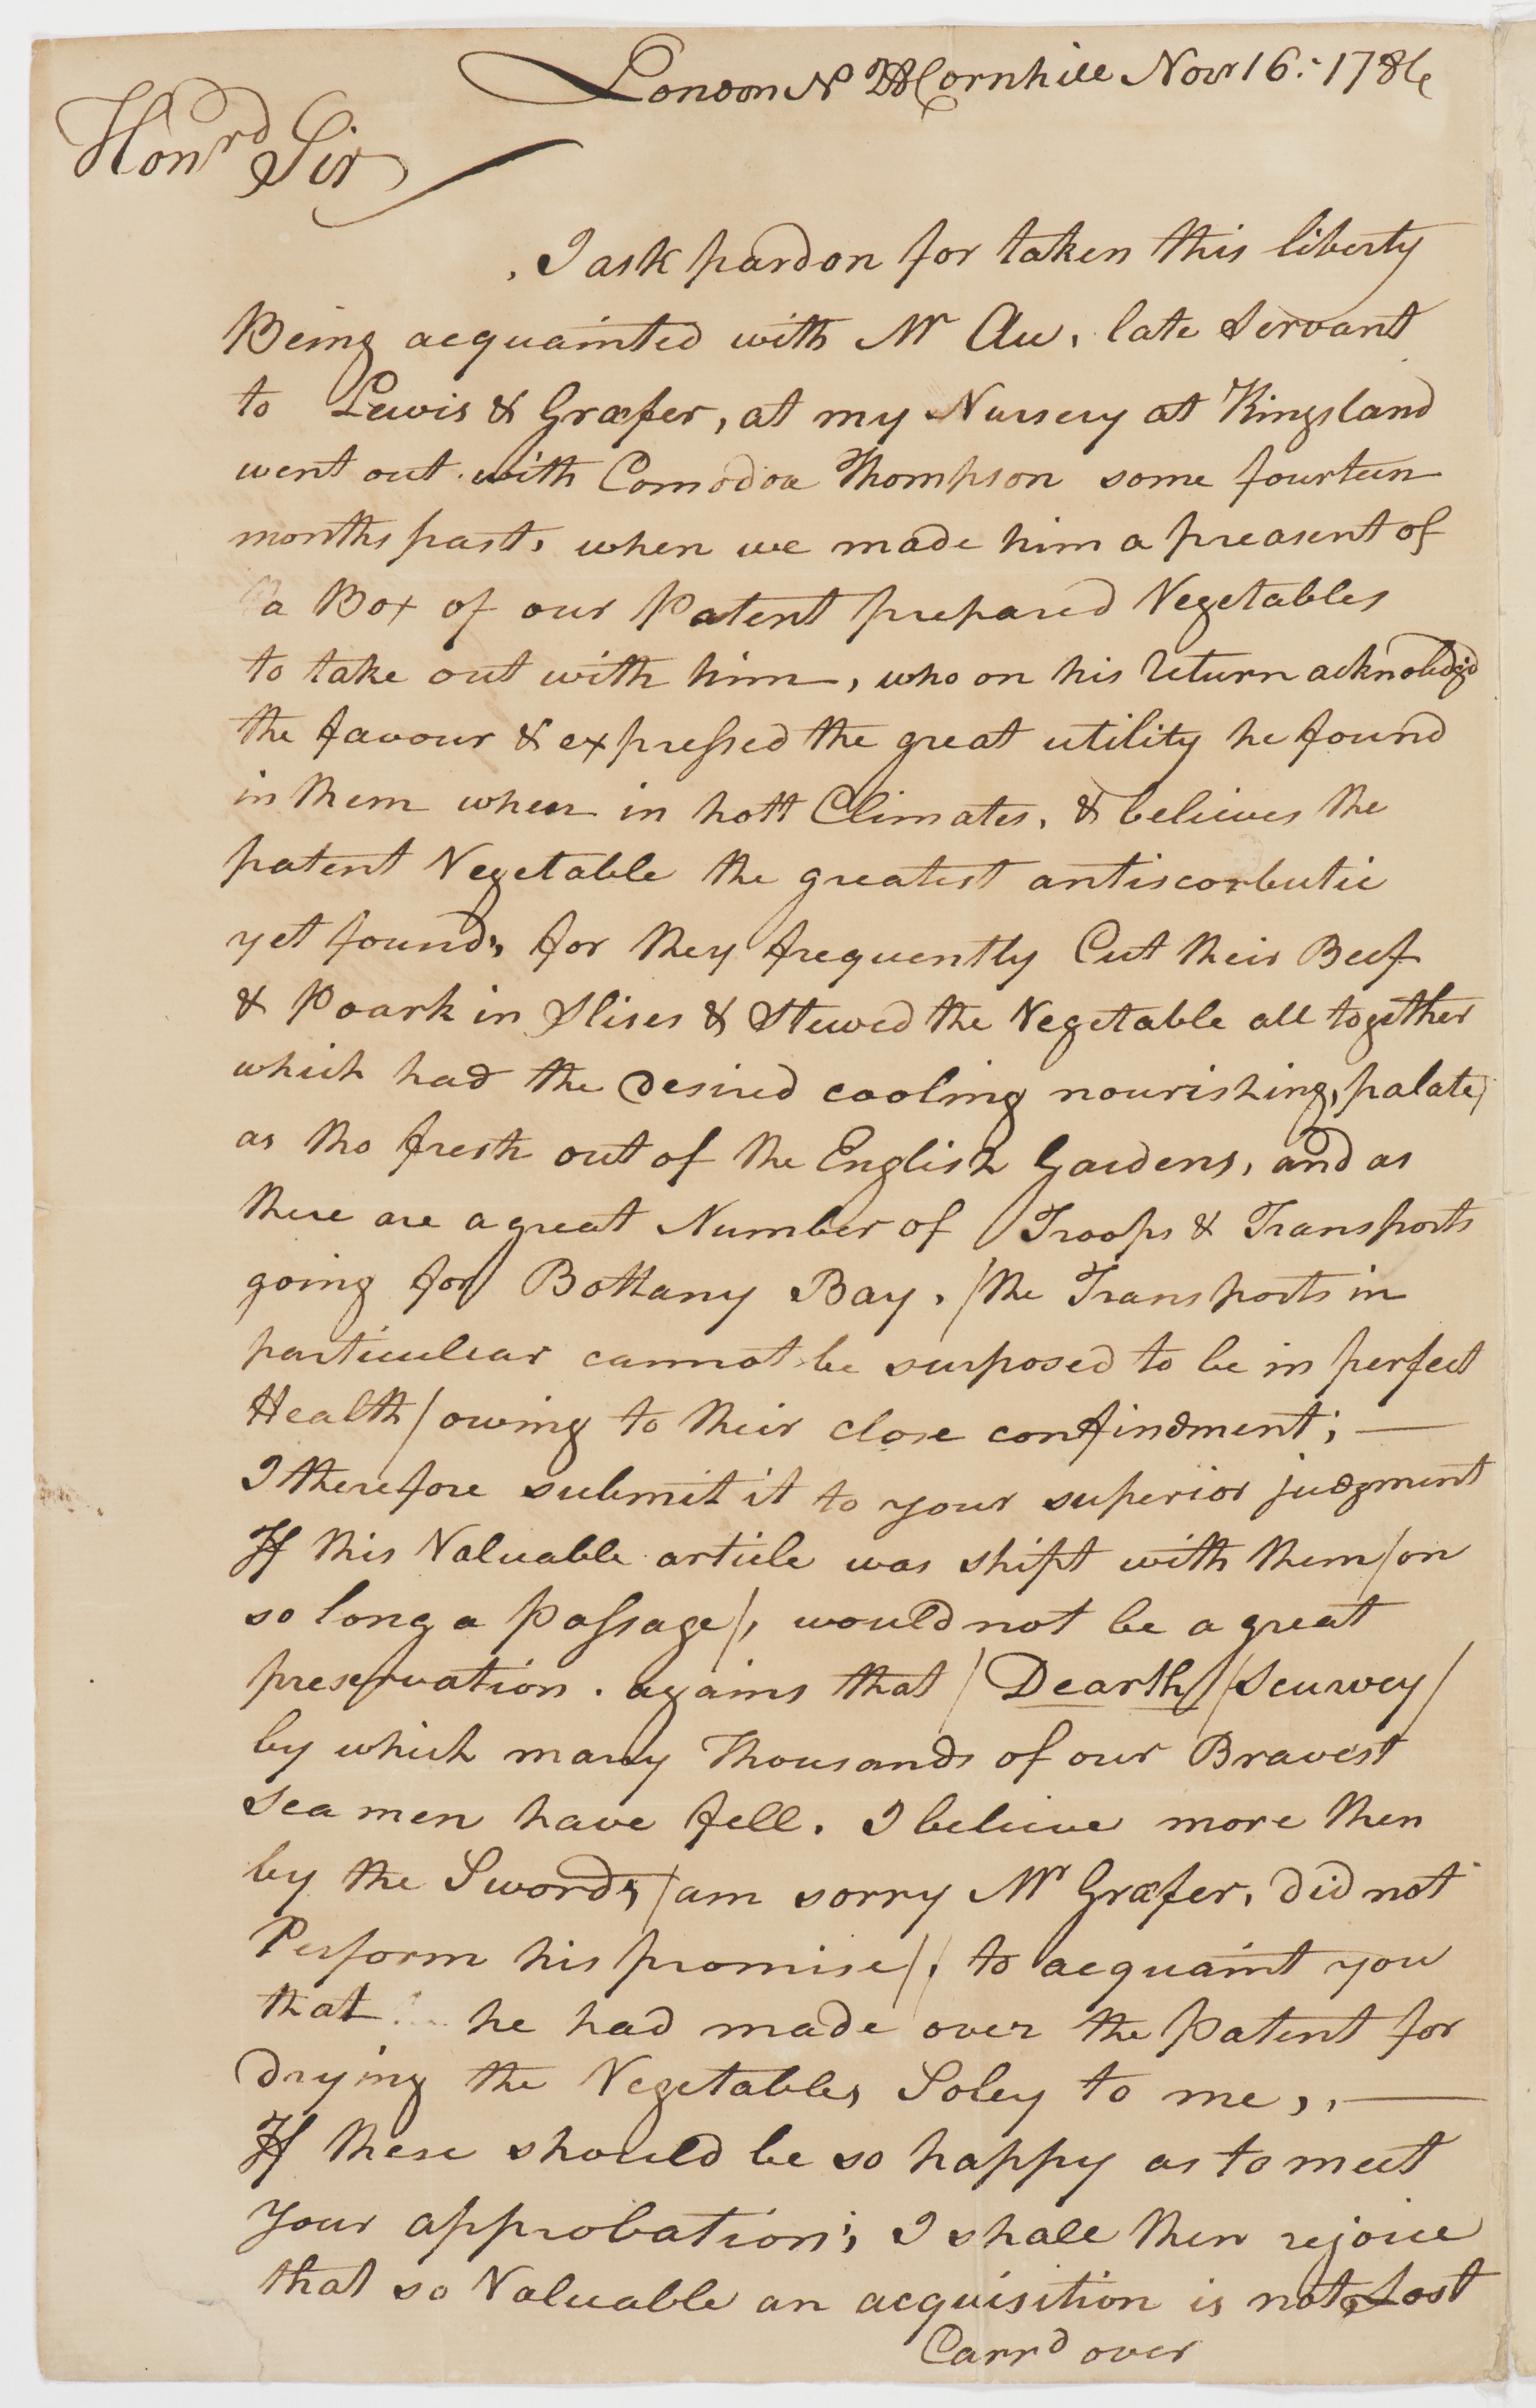 London No Cornhill Novr 16:- 1786
Honrd Sir
I ask pardon for taken this liberty
Being acquainted with Mr Au, late Servant
to Lewis & Græfer, at my Nursery at Kingsland
went out with Comodoa Thompson some fourteen
months past, when we made him a preasent of
a Box of our Patent prepared Vegetables
to take out with him, who on his return acknoledg'd
the favour & expressed the great utility he found
in them when in hott Climates, & believes the
patent Vegetable the greatest antiscorbutic
yet found, for they frequently Cut their Beef
& Poark in Slises & Stewed the Vegetable all together
which had the desired cooling nourishing, palate,
as tho fresh out of the English Gardens, and as
there are a great Number of Troops & Transports
going for Bottany Bay, /the Transports in
particulear cannot be surposed to be in perfect
Health/ owing to their close confindment; —
I therefore submit it to your superior judgment
If this Valuable article was shipt with them /on
so long a Passage/, would not be a great
preservation . agains that / Dearth / /Scurvey/
by which many Thousands of our Bravest
Seamen have fell. I believe more then
by the Sword, /am sorry Mr Græfer, did not
Perform his promise/, to acquaint you
that he had made over the Patent for
drying the Vegetables Soley to me,, —
If these should be so happy as to meet
your approbation; I shall then rejoice
that so Valuable an acquisition is not Lost
Carrd over